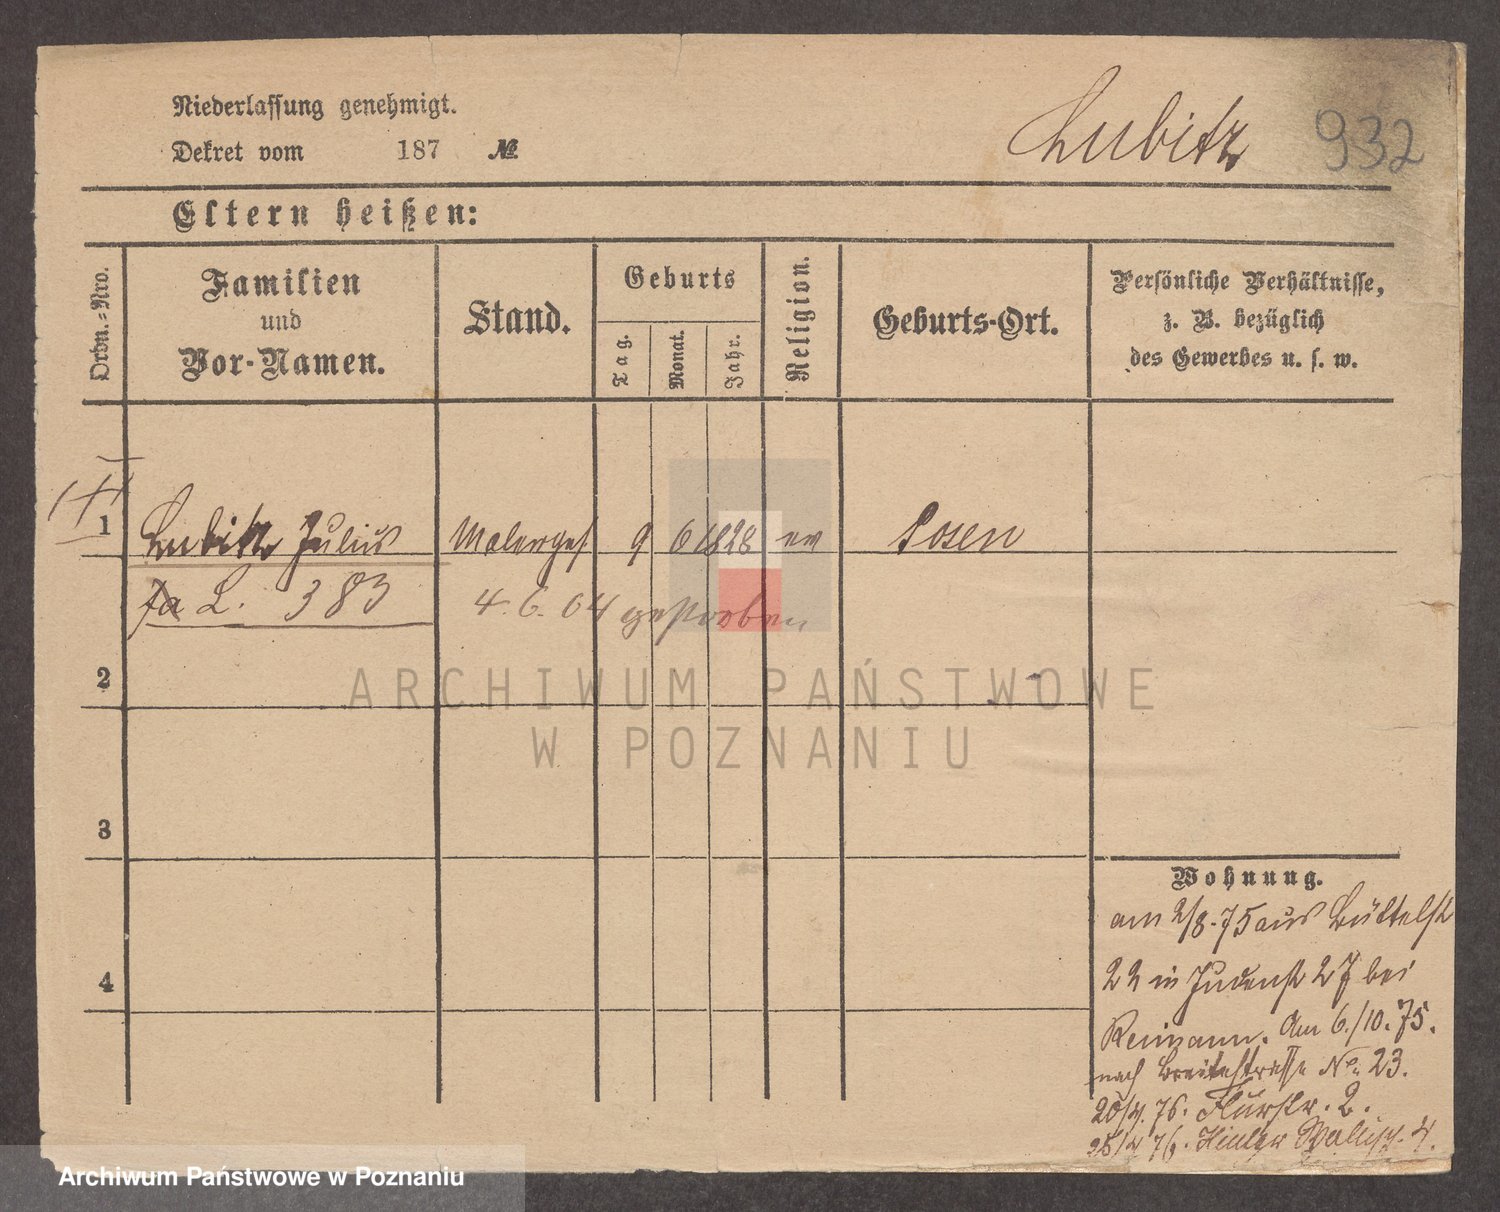 Niederlassung genehmigt.
Dekret vom 187 №
Lubitz 932
Eltern heißen:
Ordn.-Nro.
Familien
und
Vor-Namen.
Stand.
Geburts
Tag.
Monat.
Jahr.
Religion.
Geburts-Ort.
Persönliche Verhältnisse,
z. B. bezüglich
des Gewerbes u. s. w.
1 Lubitz Julius Malergeh 9 6 1828 ev Posen
L. 383 4. 6. 04 gestorben
2
ARCHIWUM PAŃSTWOWE
W POZNANIU
3
Wohnung.
am 2/8.75 aus Büttelst
22 in Judenst 27 bei
Reimann. Am 6./10.75.
nach Breitestrasse No. 23.
20/4.76. Flurstr. 2.
25/4 76. Hinter Wallisch. 4.
4
Archiwum Państwowe w Poznaniu